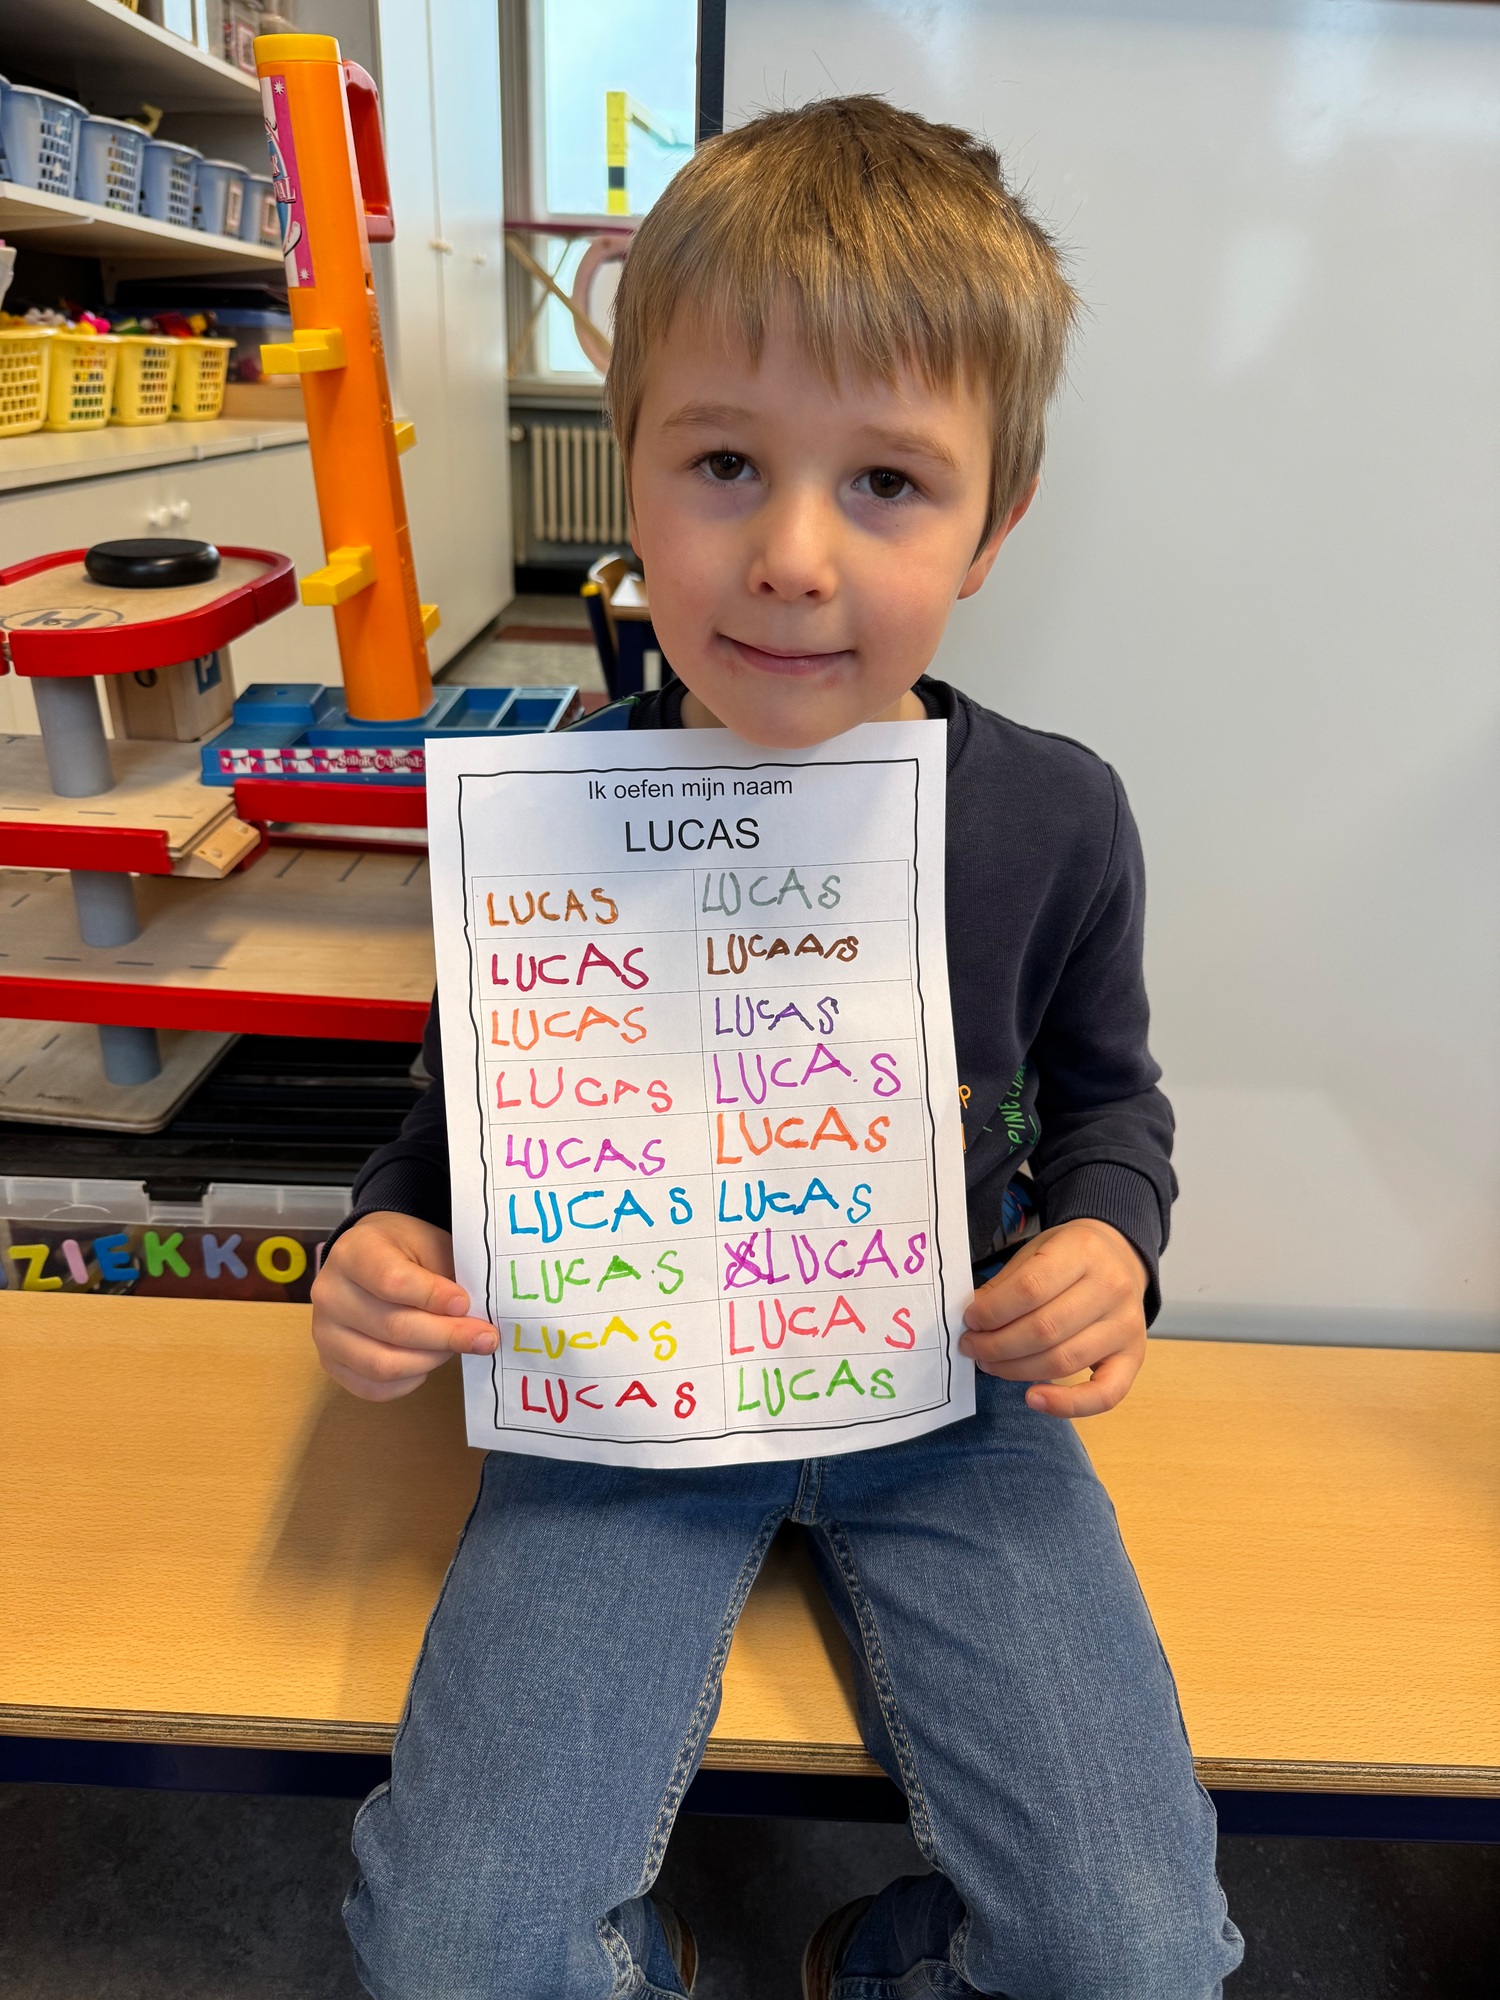 Ik oefen mijn naam
LUCAS
LUCAS LUCAS
LUCAS LUCAAS
LUCAS LUCAS
LUCAS LUCA.S
LUCAS LUCAS
LUCAS LUCAS
LUCA.S LUCAS
LUCAS LUCAS
LUCAS LUCAS
SODOR CARNIVAL
ZIEKKO
P
H